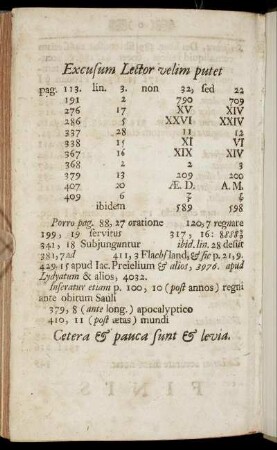 Excusum Lector velim putet
pag. 113. lin. 3. non 32, sed 22
191 2 790 709
276 17 XV XIV
286 5 XXVI XXIV
337 28 11 12
338 15 XI VI
367 16 XIX XIV
368 2 2 3
379 13 209 200
407 20 Æ. D. A. M.
409 6
ibidem 589 598
Porro pag. 88, 27 oratione 120, 7 regnare
199, 19 servitus 317, 16:
341, 18 Subjunguntur ibid. lin. 28 desit
381, 7 ad 411, 3 Flachsland, & sic p. 21, 9.
429. 15 apud Iac. Preielium & alios, 3976. apud
Lydyatum & alios, 4032.
Inseratur etiam p. 100, 10 (post annos) regni
ante obitum Sauli
379, 8 (ante long.) apocalyptico
410, 11 (post ætas) mundi
Cetera & pauca sunt & levia.